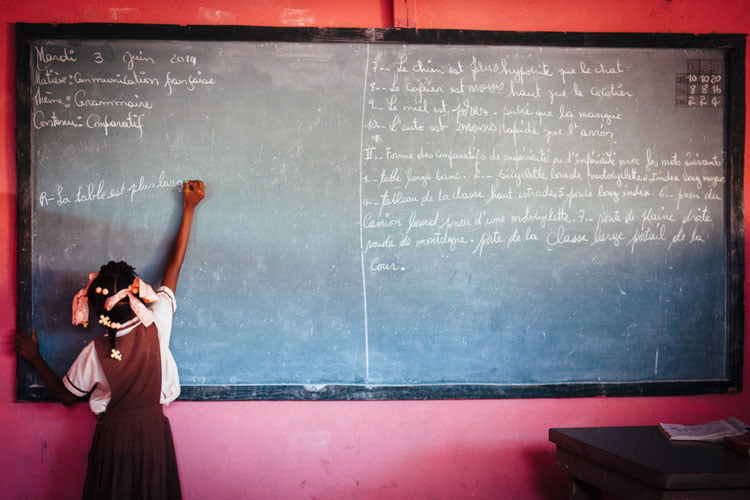 Mardi 3 Juin 2014
Matière : Communication française
Thème : Grammaire
Contenu : Comparatif
R- La table est plus larg
7_ Le chien est plus hypocrite que le chat.
8_ Le cafier est moins haut que le cocotier
9_ Le miel est plus sucré que la mangue
10_ L'auto est moins rapide que l'avion
II_ Forme des comparatifs de supériorité ou d'infériorité avec les mots suivants
1_ table large banc. 2_ bicyclette lourde motocyclette 3 Index long majeur
4_ tableau de la classe haut estrade 5 pouce long index. 6_ pneu du
Camion lourd pneu d'une motocyclette. 7_ route de plaine droite
route de montagne. porte de la Classe large portail de la
Cour.
10 10 20
8 8 16
2 2 4